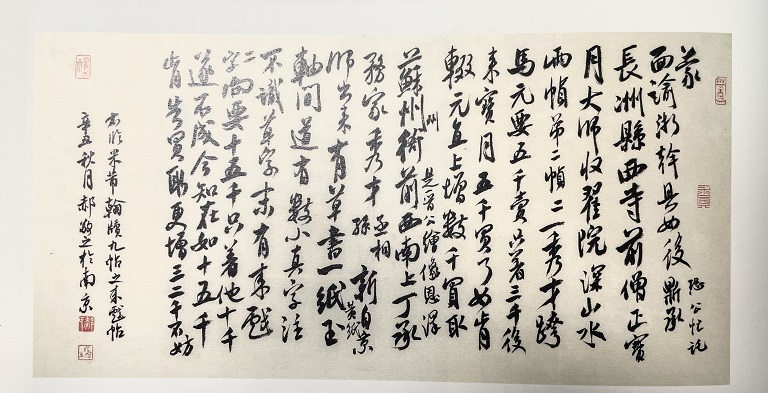 蒙
面諭淅幹具如後 鼎承
恐公忙託
長洲縣西寺前僧正寶
月大師收翟院深山水
兩幀弟二幀上一秀才跨
馬元要五千賣只著三千後
來寶月五千買了如肯
輟元直上增數千買取
州
是晉公繪像恩澤
蘇州衙前西南上丁承
務家秀才 孫 丞相 新自京
黃紙
師出來有草書一紙
軸間道有數小真字注
不識草字末有來戲
二字向要十五千只著他十千
遂不成今知在如十五千
肯告買取更增三二千不妨
右臨米芾翰牘九帖之來戲帖
辛丑秋月郝敬之於南京